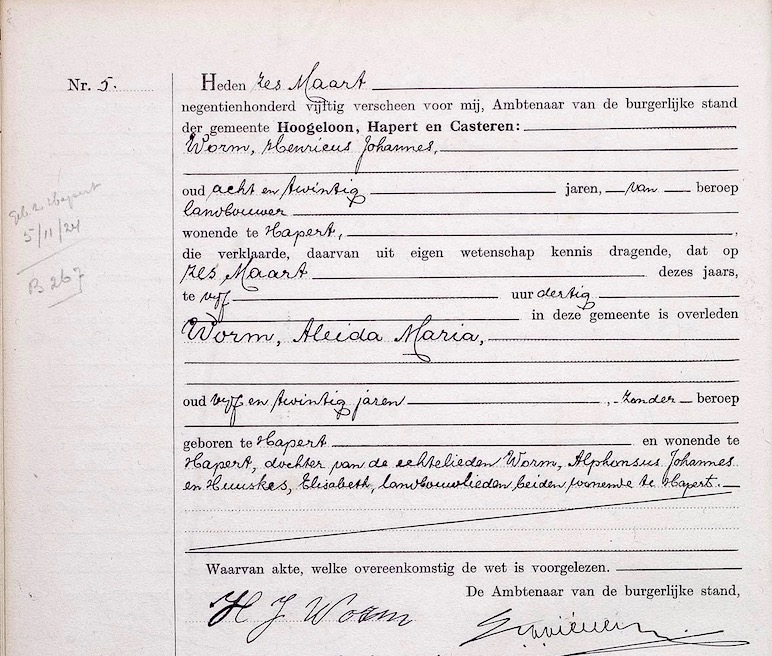 Nr. 5.
Heden zes Maart
negentienhonderd vijftig verscheen voor mij, Ambtenaar van de burgerlijke stand
der gemeente Hoogeloon, Hapert en Casteren:
Worm, Henricus Johannes,
oud acht en twintig jaren, van beroep
landbouwer
wonende te Hapert,
die verklaarde, daarvan uit eigen wetenschap kennis dragende, dat op
zes Maart dezes jaars,
te vyf uur dertig
in deze gemeente is overleden
Worm, Aleida Maria,
oud vyf en twintig jaren, zonder beroep
geboren te Hapert en wonende te
Hapert, dochter van de echtelieden Worm, Alphonsus Johannes
en Huuskes, Elisabeth, landbouwlieden beiden wonende te Hapert.
Waarvan akte, welke overeenkomstig de wet is voorgelezen.
De Ambtenaar van de burgerlijke stand,
H J Worm
geb. te Hapert
5/11/24
B 267